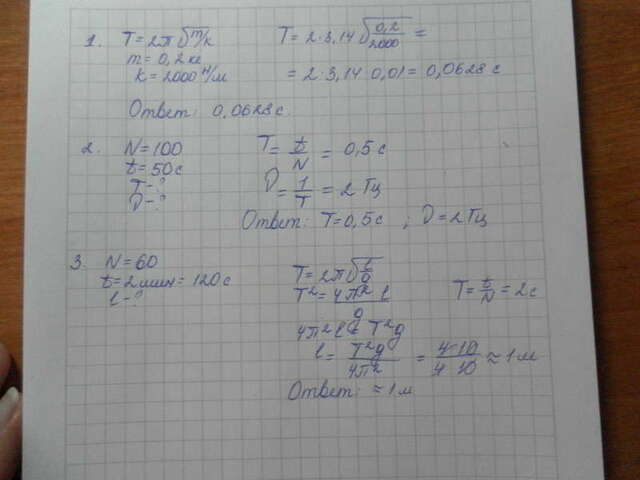 1. T=2π√m/k T = 2·3,14 √0,2/2000 =
m = 0,2 кг
k = 2000 Н/м = 2·3,14·0,01 = 0,0628 с
Ответ: 0,0628 с.
2. N=100 T= t/N = 0,5 с
t=50с
T-? ν = 1/T = 2 Гц
ν-?
Ответ: T=0,5с ; ν=2Гц
3. N=60
t=2мин=120с T=2π√l/g
l-? T²=4π² l/g T= t/N =2с
4π²l = T²g
l= T²g/4π² = 4·10/4·10 ≈ 1м
Ответ: ≈1м